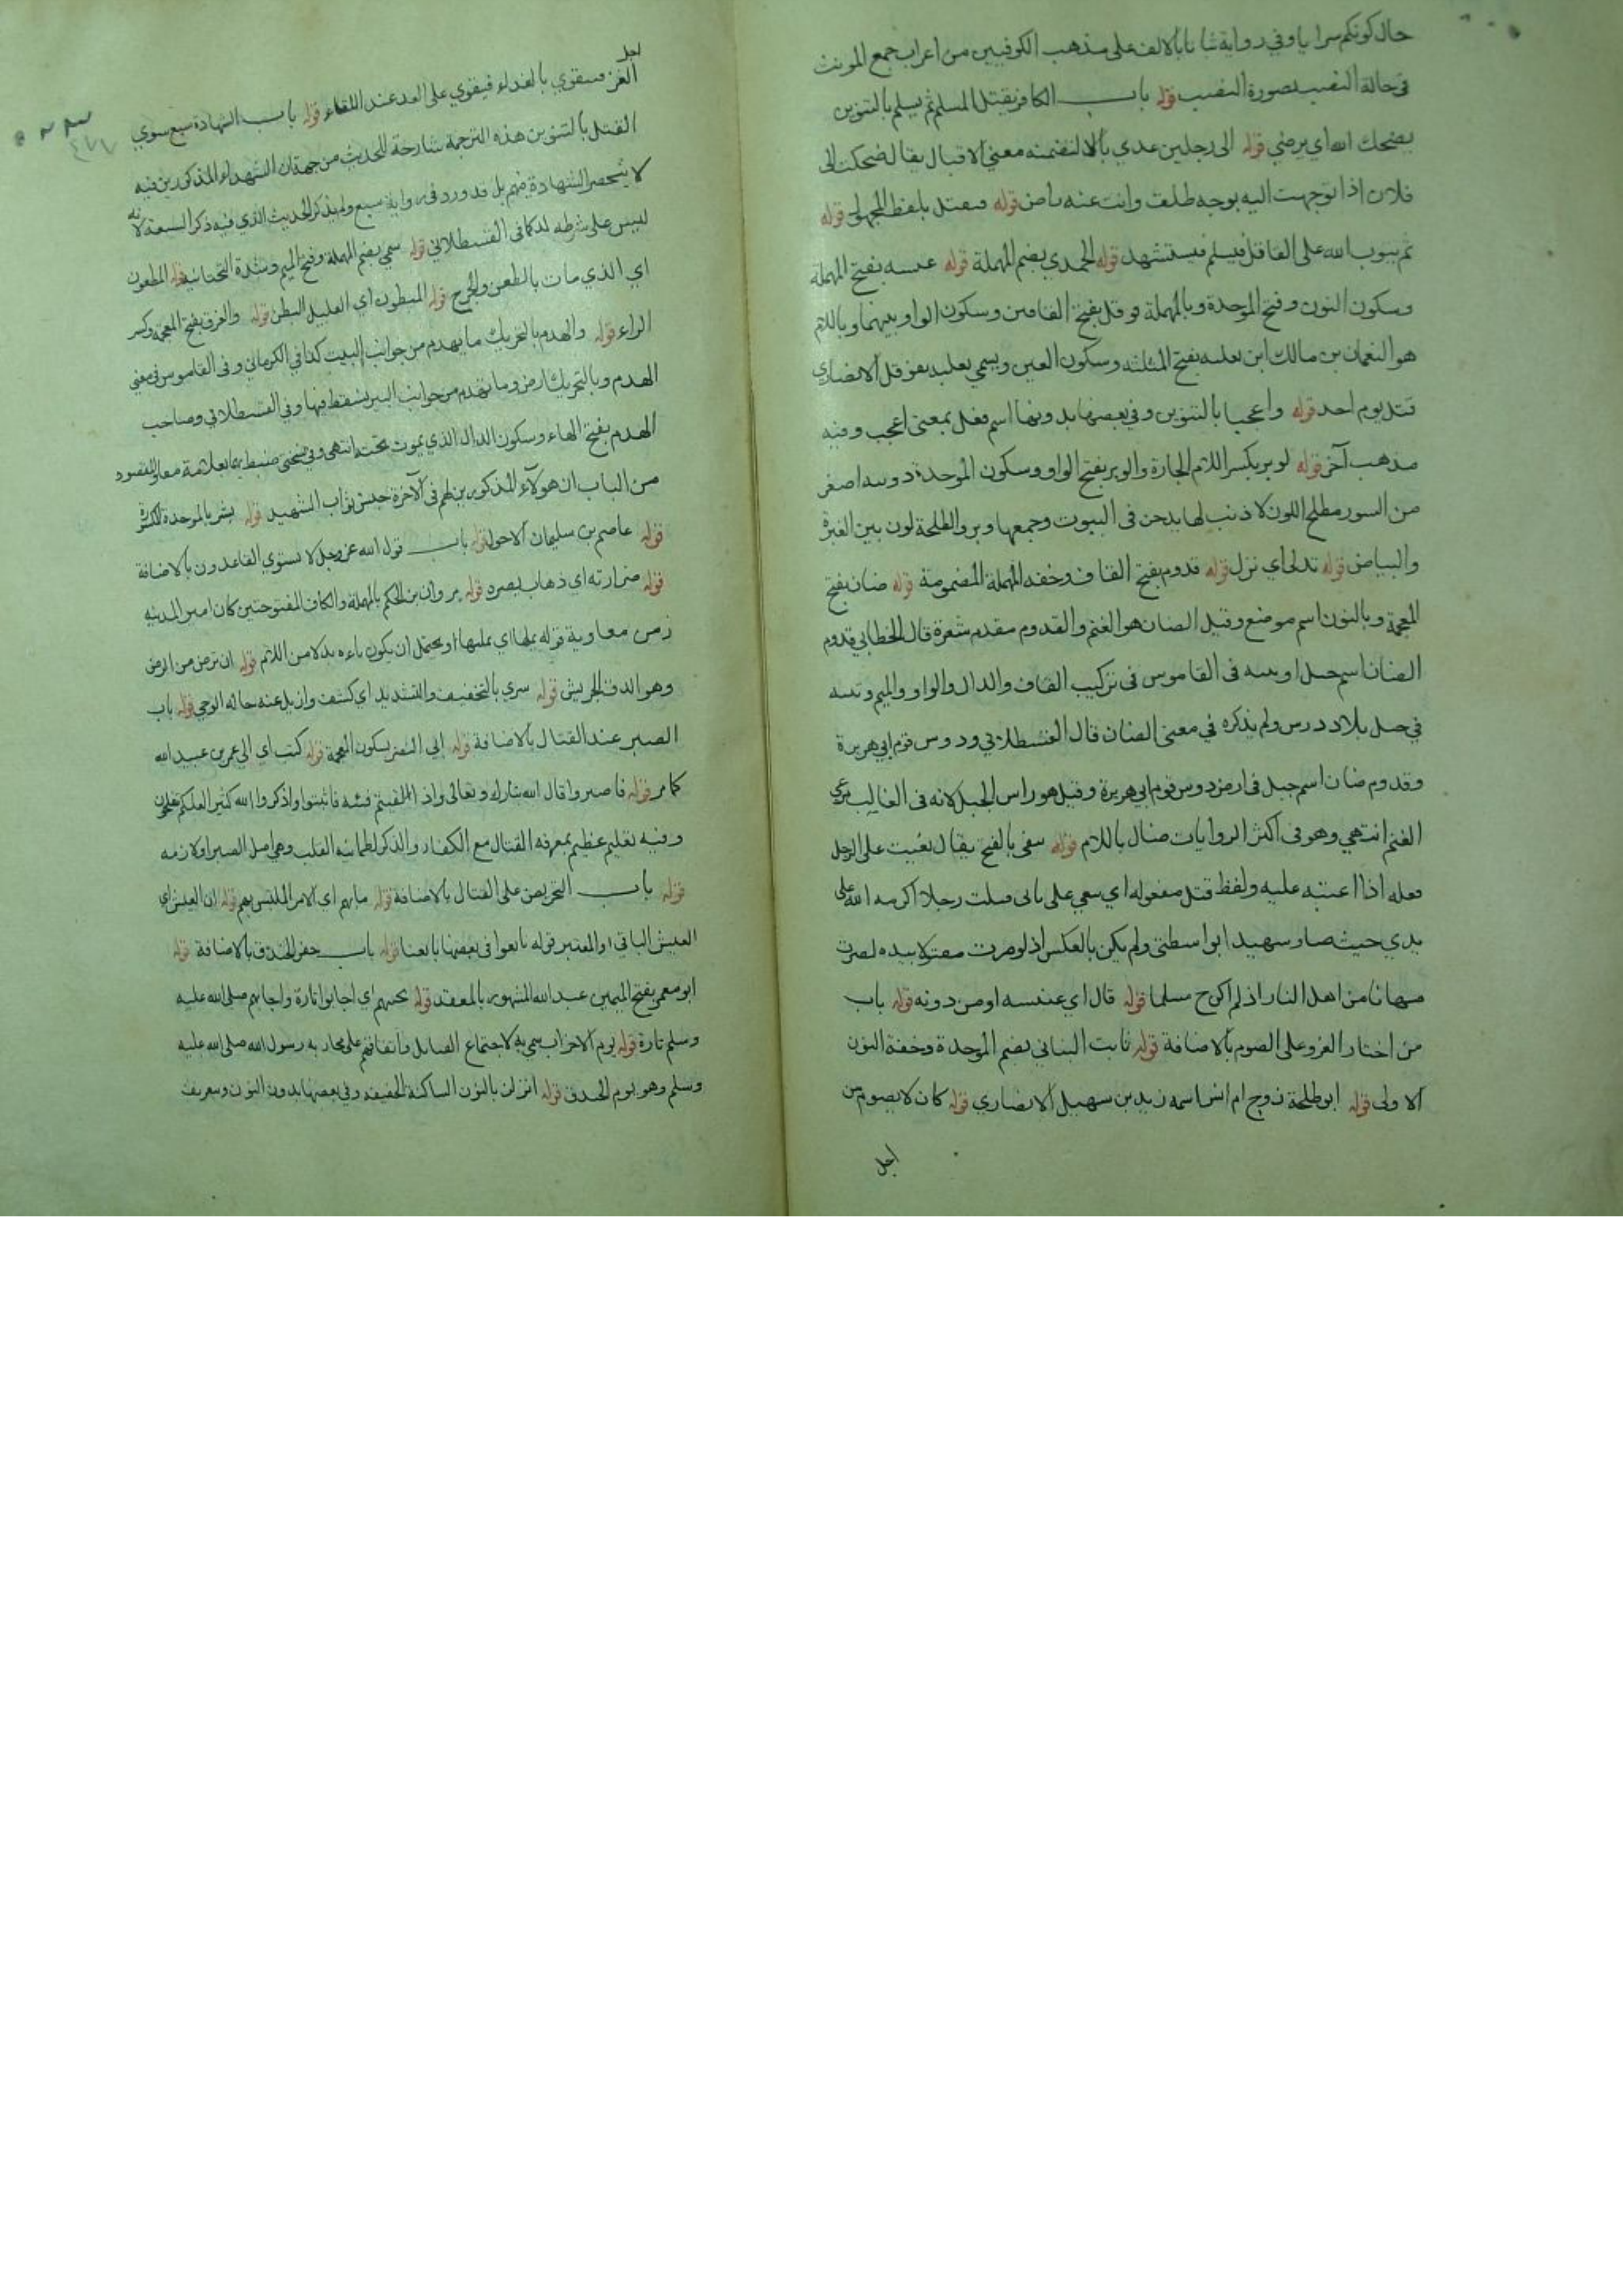 حال كونكم سرايا وفي رواية ثباتا بالالف على مذهب الكوفيين من اعراب جمع المونث
في حالة النصب بصورة النصب قوله باب الكافر يقتل المسلم ثم يسلم بالتنوين
يضحك الله اي يرضي قوله الى رجلين عدي بالى لتضمنه معنى الاقبال يقال ضحكت الى
فلان اذا توجهت اليه بوجه طلق وانت عنه راض قوله فيقتل بلفظ المجهول قوله
ثم يتوب الله على القاتل فيسلم فيستشهد قوله الحمدي بضم المهملة قوله عنبسه بفتح المهملة
وسكون النون وفتح الموحدة وبالمهملة قوقل بفتح القافين وسكون الواو بينهما وباللام
هو النعمان بن مالك ابن ثعلبه بفتح المثلثه وسكون العين ويسمي ثعلبه بقوقل الانصاري
قتل يوم احد قوله واعجبا بالتنوين وفي بعضها بدونها اسم فعل بمعنى اعجب وفيه
مذهب آخر قوله لوبر بكسر اللام الجارة والوبر بفتح الواو وسكون الموحدة دويبه اصغر
من السنور مطلح اللون لا ذنب لها يدجن في البيوت وجمعها وبر والطلحة لون بين الغبرة
والبياض قوله تدلى اي نزل قوله قدوم بفتح القاف وخفه المهملة المضمومة قوله ضان بفتح
المعجمة وبالنون اسم موضع وقيل الضان هو الغنم والقدوم مقدم شعره قال الخطابي قدوم
الضان اسم جبل او ثنيه في القاموس في تركيب القاف والدال والواو والميم وثنيه
في جبل ببلاد دوس ولم يذكره في معنى الضان قال القسطلاني ودوس قوم ابي هريرة
وقدوم ضان اسم جبل في ارض دوس قوم ابي هريرة وقيل هو راس الجبل لانه في الغالب مرعى
الغنم انتهي وهو في اكثر الروايات ضال باللام قوله نعى بالفتح يقال نعيت على الرجل
فعله اذا اعبته عليه ولفظ قتل مفعوله اي نعي على باني قتلت رجلا اكرمه الله على
يدي حيث صار شهيدا بواسطتي ولم يكن بالعكس اذ لو صرت مقتولا بيده لصرت
مهانا من اهل النار اذ لم اكن ح مسلما قوله قال اي عنبسه او من دونه قوله باب
من اختار الغزو على الصوم بالاضافة قوله ثابت البناني بضم الموحدة وخفة النون
الاولى قوله ابو طلحة زوج ام انس اسمه زيد بن سهيل الانصاري قوله كان لا يصوم من
اجل
اجل
الغزو فيتقوي بالغداء فيقوي على العدو عند اللقاء قوله باب الشهادة سبع سوي
القتل بالتنوين هذه الترجمة شارحة للحديث من جهة ان الشهداء المذكورين فيه
لا تنحصر الشهادة فيهم بل قد ورد في رواية سبع ولم يذكر الحديث الذي فيه ذكر السبعة لانه
ليس على شرطه كذا في القسطلاني قوله سمي بضم المهملة وفتح الميم وشدة التحتانيه قوله المطعون
اي الذي مات بالطعن والجرح قوله المبطون اي العليل البطن قوله والغرق بفتح المعجمة وكسر
الراء قوله والهدم بالتحريك ما يهدم من جوانب البيت كذا في الكرماني وفي القاموس في معنى
الهدم وبالتحريك ارض وما تهدم من جوانب البير فسقط فيها وفي القسطلاني وصاحب
الهدم بفتح الهاء وسكون الدال الذي يموت تحته انتهى وفي نسختي ضبط بهما بعلامة معا والمقصود
من الباب ان هولاء المذكورين لهم في الآخرة جنس ثواب الشهيد قوله بشر بالموحدة المكسورة
قوله عاصم بن سليمان الاحول قوله باب قول الله عز وجل لا يستوي القاعدون بالاضافة
قوله ضرارته اي ذهاب بصره قوله مروان بن الحكم بالمهملة والكاف المفتوحتين كان امير المدينه
زمن معاوية قوله يملها اي يمليها او يحتمل ان يكون ياءه بدلا من اللام قوله ان ترض من الرض
وهو الدق الجريش قوله سري بالتخفيف والتشديد اي كشف وازيل عنه حاله الوحي قوله باب
الصبر عند القتال بالاضافة قوله ابي النضر بسكون المعجمة قوله كتب اي الي عمر بن عبيد الله
كما مر قوله فاصبروا قال الله تبارك وتعالى واذا لقيتم فئه فاثبتوا واذكروا الله كثيرا لعلكم تفلحون
وفيه تعليم عظيم بمعرفه القتال مع الكفار والذكر لطمانينه القلب وهي اصل الصبر او لازمه
قوله باب التحريض على القتال بالاضافة قوله ما بهم اي الامر الملتبس بهم قوله ان العيش اي
العيش الباقي او المعتبر قوله تابعوا في بعضها بايعنا قوله باب حفر الخندق بالاضافة قوله
ابو معمر بفتح الميمين عبد الله المشهور بالمعقد قوله يجيبهم اي اجابوا تارة واجابهم صلى الله عليه
وسلم تارة قوله يوم الاحزاب سمي به لاجتماع القبايل واتفاقهم على محاربه رسول الله صلى الله عليه
وسلم وهو يوم الخندق قوله انزلن بالنون الساكنة الخفيفه وفي بعضها بدون النون وتعريف